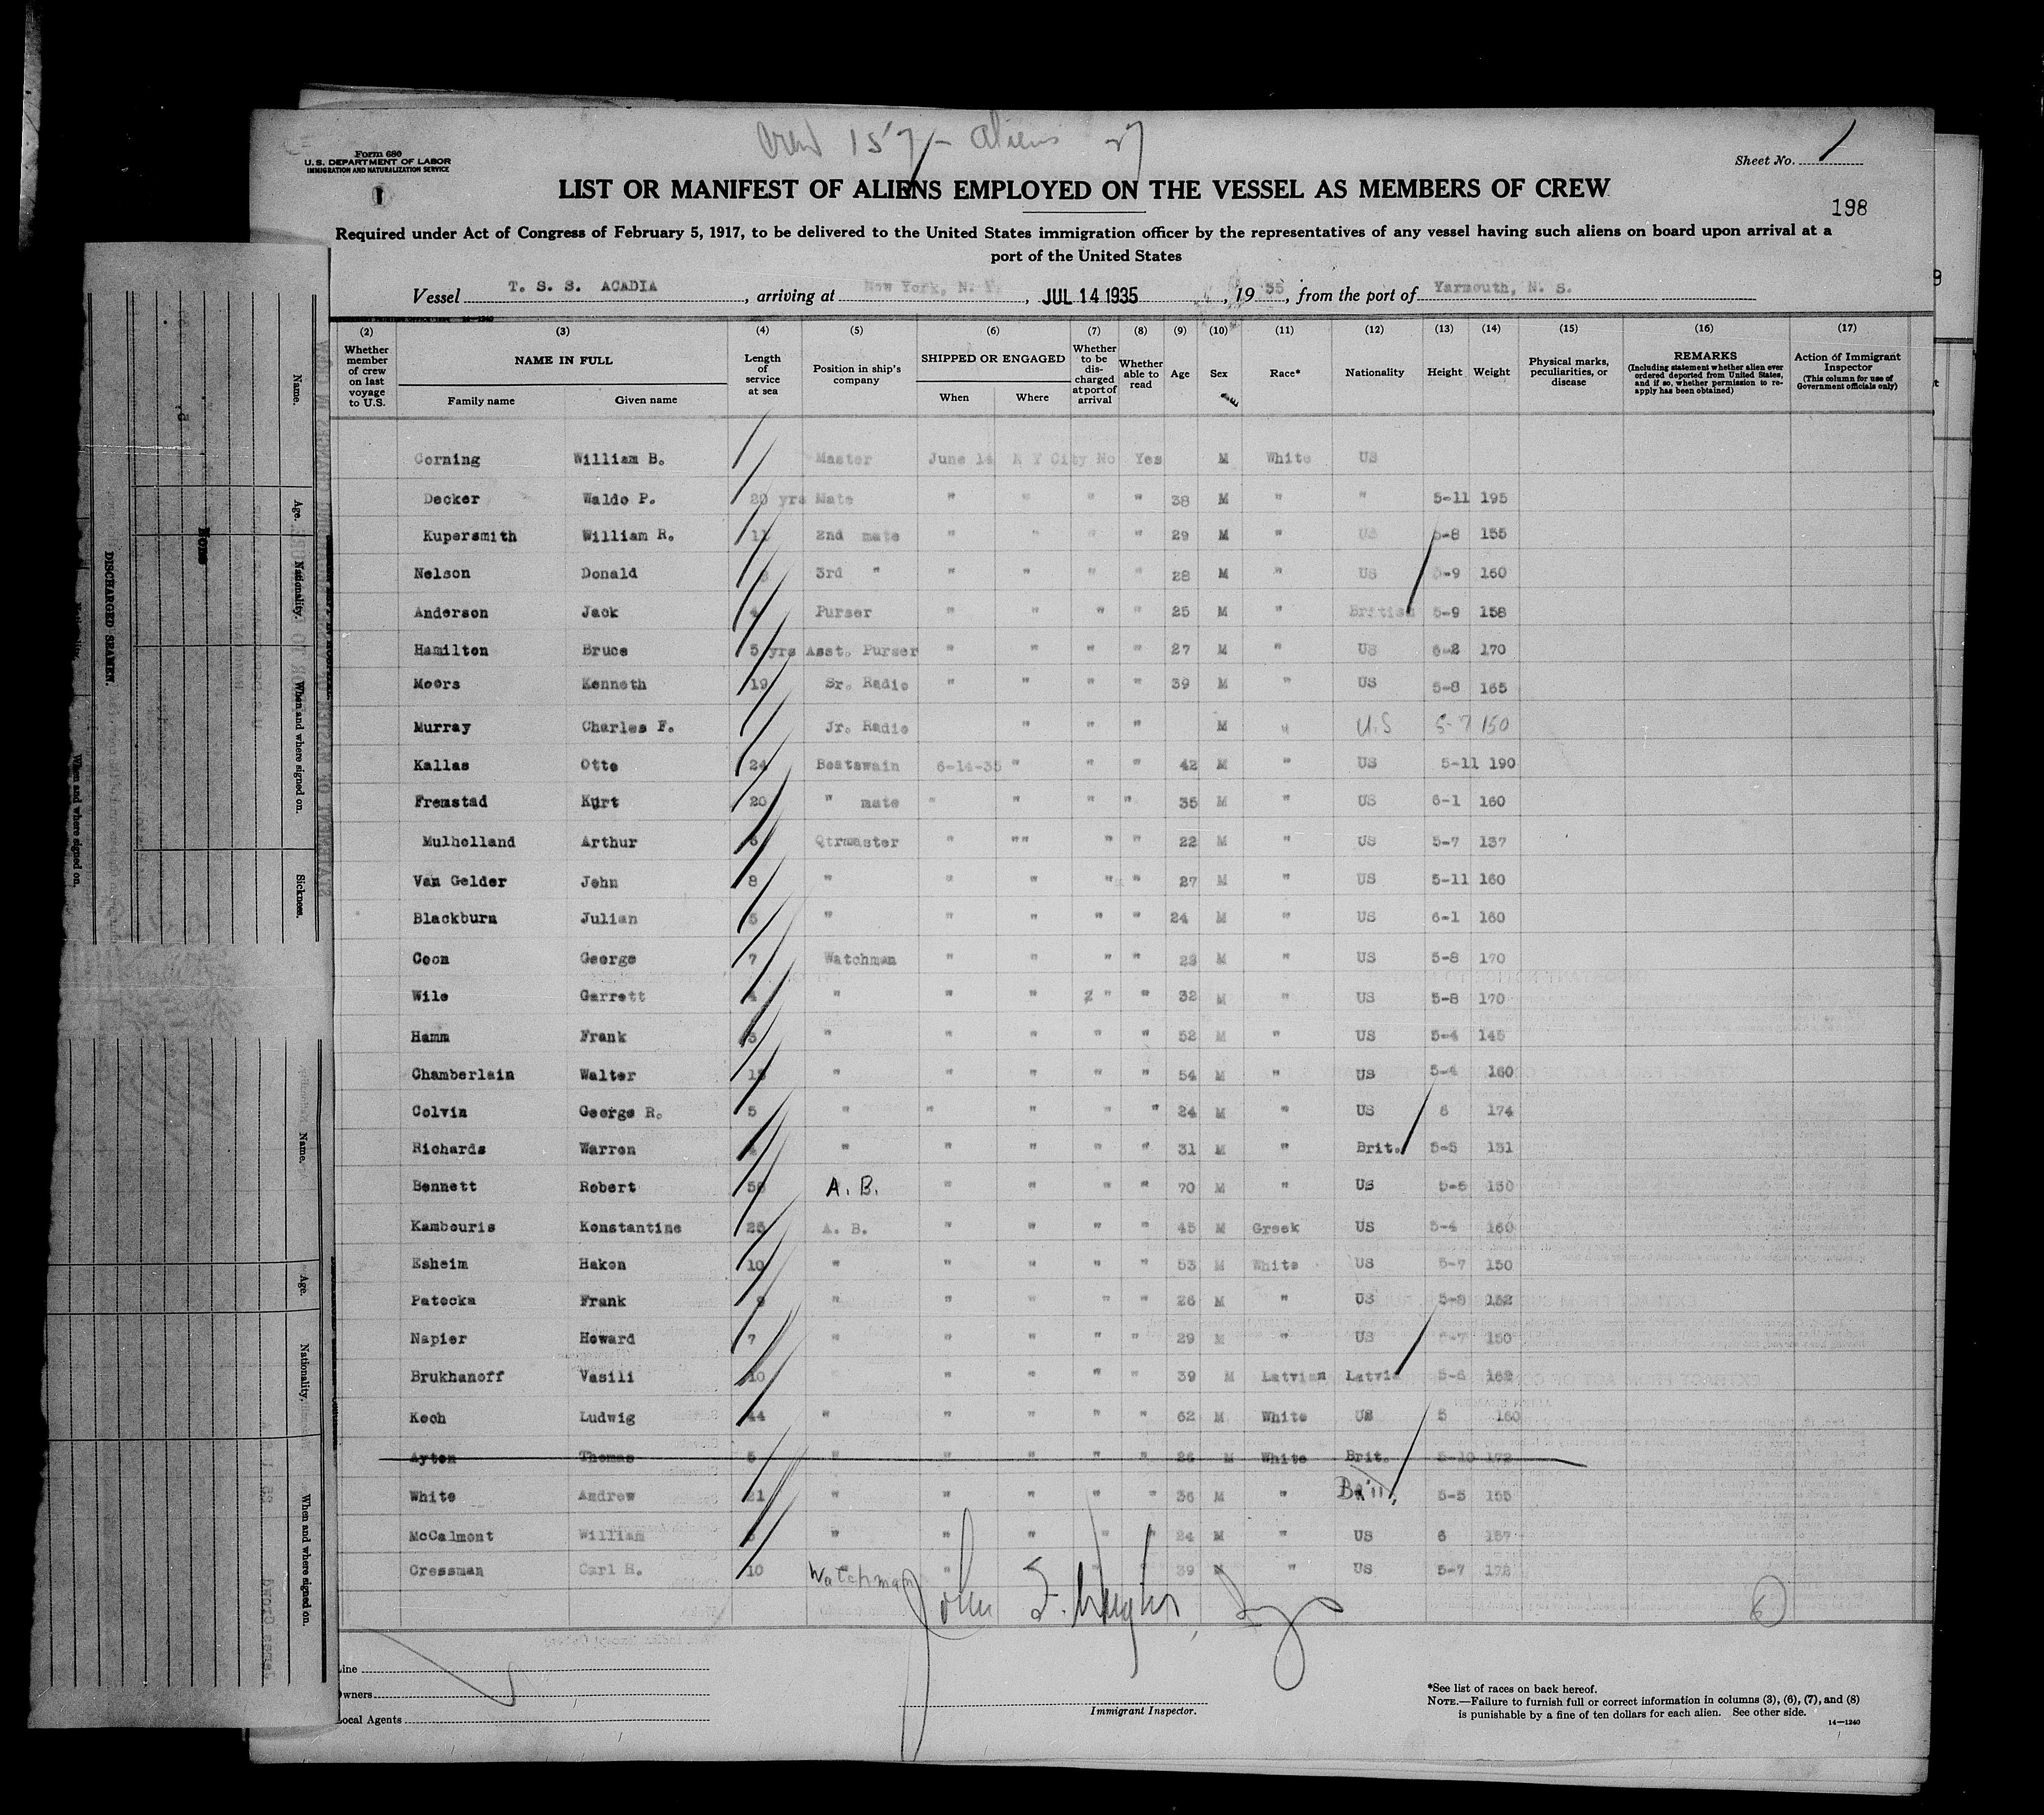 Crew 157 - Aliens 27
Form 680
U.S. DEPARTMENT OF LABOR
IMMIGRATION AND NATURALIZATION SERVICE
Sheet No. 1
LIST OR MANIFEST OF ALIENS EMPLOYED ON THE VESSEL AS MEMBERS OF CREW
198
Required under Act of Congress of February 5, 1917, to be delivered to the United States immigration officer by the representatives of any vessel having such aliens on board upon arrival at a
port of the United States
Vessel T. S. S. ACADIA, arriving at New York, N. Y., JUL 14 1935, 1935, from the port of Yarmouth, N. S.
(2) (3) (4) (5) (6) (7) (8) (9) (10) (11) (12) (13) (14) (15) (16) (17)
Whether member of crew on last voyage to U.S. NAME IN FULL Family name Given name Length of service at sea Position in ship's company SHIPPED OR ENGAGED When Where Whether to be discharged at port of arrival Whether able to read Age Sex Race* Nationality Height Weight Physical marks, peculiarities, or disease REMARKS (Including statement whether alien ever ordered deported from United States, and if so, whether permission to reapply has been obtained) Action of Immigrant Inspector (This column for use of Government officials only)
Corning William B. Master June 14 N Y City No Yes M White US
Decker Waldo P. 20 yrs Mate " " " " 38 M " " 5-11 195
Kupersmith William R. 11 2nd mate " " " " 29 M " US 5-8 155
Nelson Donald 3rd " " " " " 28 M " US 5-9 160
Anderson Jack 4 Purser " " " " 25 M " British 5-9 158
Hamilton Bruce 5 yrs Asst. Purser " " " " 27 M " US 6-2 170
Moors Kenneth 19 Sr. Radio " " " " 39 M " US 5-8 165
Murray Charles F. Jr. Radio " " " M " U.S 5-7 150
Kallas Otto 24 Boatswain 6-14-35 " " " 42 M " US 5-11 190
Fremstad Kurt 20 " mate " " " " 35 M " US 6-1 160
Mulholland Arthur 6 Qtrmaster " "" " " 22 M " US 5-7 137
Van Gelder John 8 " " " " " 27 M " US 5-11 160
Blackburn Julian 5 " " " " " 24 M " US 6-1 160
Coon George 7 Watchman " " " " 23 M " US 5-8 170
Wile Garrett 4 " " " " " 32 M " US 5-8 170
Hamm Frank 3 " " " " " 52 M " US 5-4 145
Chamberlain Walter " " " " " 54 M " US 5-4 160
Colvin George R. 5 " " " " " 24 M " US 6 174
Richards Warren " " " " " 31 M " Brit. 5-5 131
Bennett Robert A. B. " " " " 70 M " US 5-5 150
Kambouris Konstantine 25 A. B. " " " " 45 M Greek US 5-4 160
Esheim Hakon 10 " " " " " 53 M White US 5-7 150
Patocka Frank 9 " " " " " 26 M " US 5-8 152
Napier Howard 7 " " " " " 29 M " US 5-7 150
Brukhanoff Vasili 10 " " " " " 39 M Latvian Latvia 5-6 162
Koch Ludwig 44 " " " " " 62 M White US 5 160
Ayton Thomas 5 " " " " " 26 M White Brit. 5-10 172
White Andrew 21 " " " " " 36 M " Brit. 5-5 155
McCalmont William " " " " " 24 M " US 6 157
Cressman Carl H. 10 Watchman " " " " 39 M " US 5-7 172
6
Line
Owners
Local Agents
Immigrant Inspector.
*See list of races on back hereof.
NOTE.—Failure to furnish full or correct information in columns (3), (6), (7), and (8)
is punishable by a fine of ten dollars for each alien. See other side.
14—1240
DISCHARGED SEAMEN.
Name. Age. Nationality. When and where signed on. Sickness.
None
When and where signed on.
Name. Age. Nationality. When and where signed on.